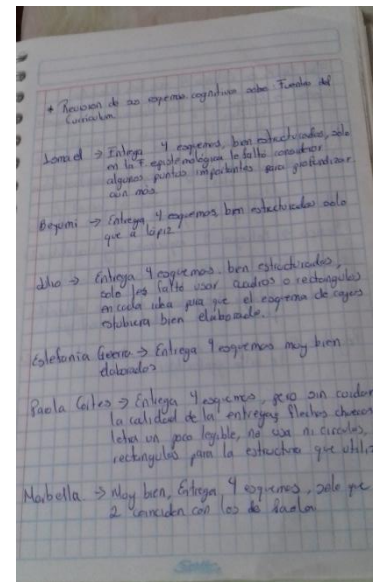 * Revision de los esquemas cognitivos sobre Fuentes del
Curriculum
→ Entrega 4 esquemas, bien estructurados, solo
en la F. epistemologica le falto considerar
algunos puntos importantes para profundizar
aún más.
Beyomi → Entrega 4 esquemas bien estructurados solo
que a lápiz
→ Entrega 4 esquemas bien estructurados,
solo les faltó usar cuadros o rectangulos
en cada idea para que el esquema de cajas
estubiera bien elaborado.
Estefania Guerra → Entrega 4 esquemas muy bien
elaborados
Paola Cortes → Entrega 4 esquemas, pero sin cuidar
la calidad de la entrega, flechas chuecas
letra un poco legible, no usa ni circulos,
rectangulos para la estructura que utiliz
Marbella → Muy bien, Entrega 4 esquemas, solo que
2 coinciden con los de Paola